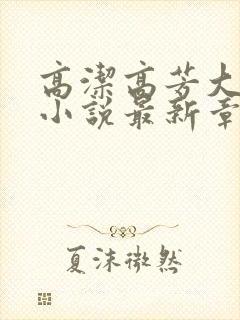 高潔高芳大
小說最新章
夏沫微然